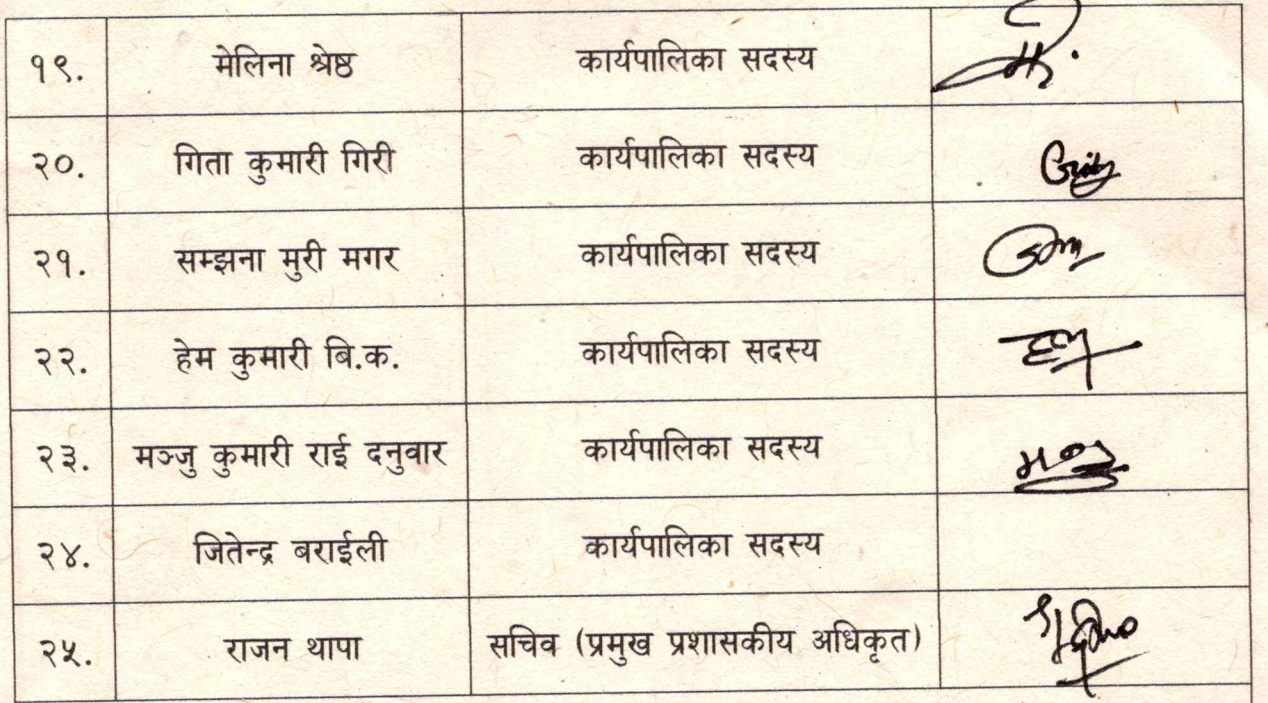 १९. मेलिना श्रेष्ठ कार्यपालिका सदस्य
२०. गिता कुमारी गिरी कार्यपालिका सदस्य
२१. सम्झना मुरी मगर कार्यपालिका सदस्य
२२. हेम कुमारी बि.क. कार्यपालिका सदस्य
२३. मञ्जु कुमारी राई दनुवार कार्यपालिका सदस्य
२४. जितेन्द्र बराईली कार्यपालिका सदस्य
२५. राजन थापा सचिव (प्रमुख प्रशासकीय अधिकृत)